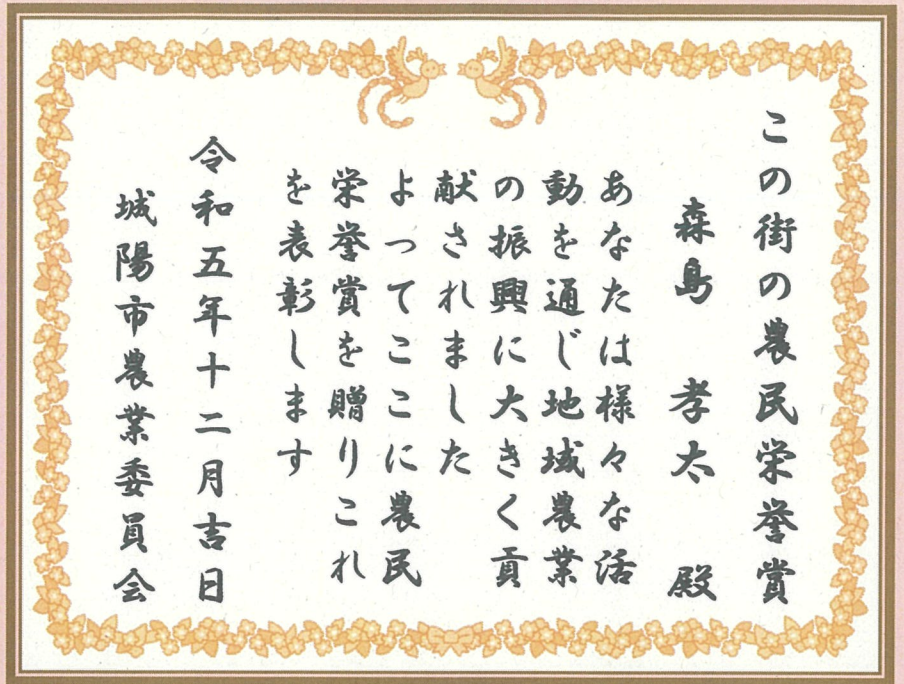 この街の農民栄誉賞
森島 孝太 殿
あなたは様々な活
動を通じ地域農業
の振興に大きく貢
献されました
よってここに農民
栄誉賞を贈りこれ
を表彰します
令和五年十二月吉日
城陽市農業委員会